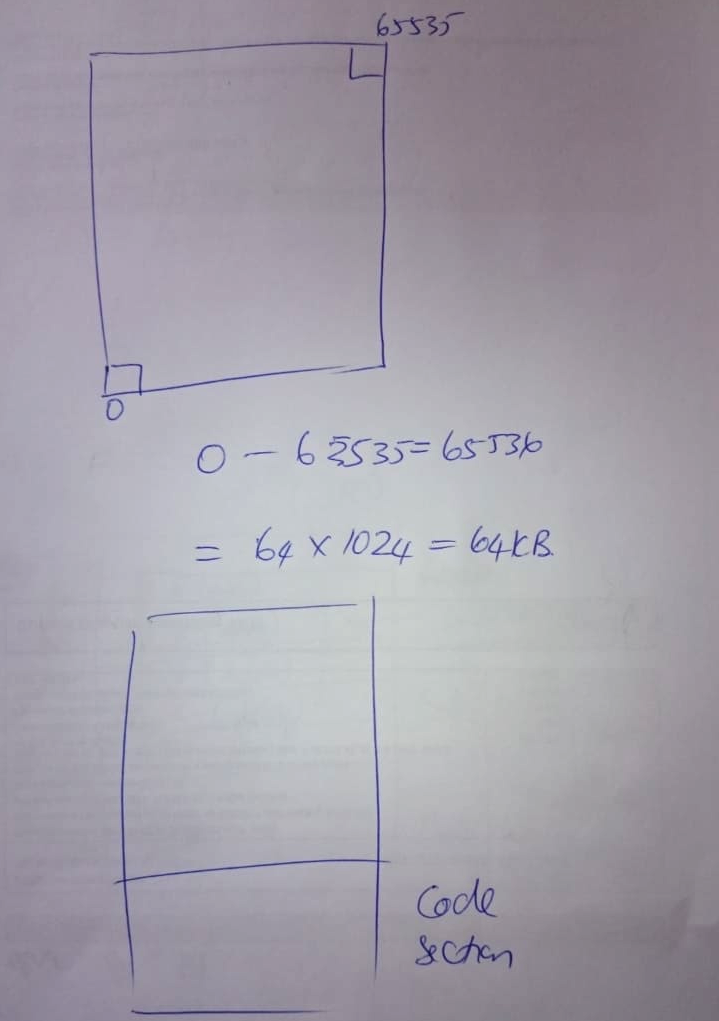 65535
0
0 - 65535 = 65536
= 64 x 1024 = 64KB
Code
Section